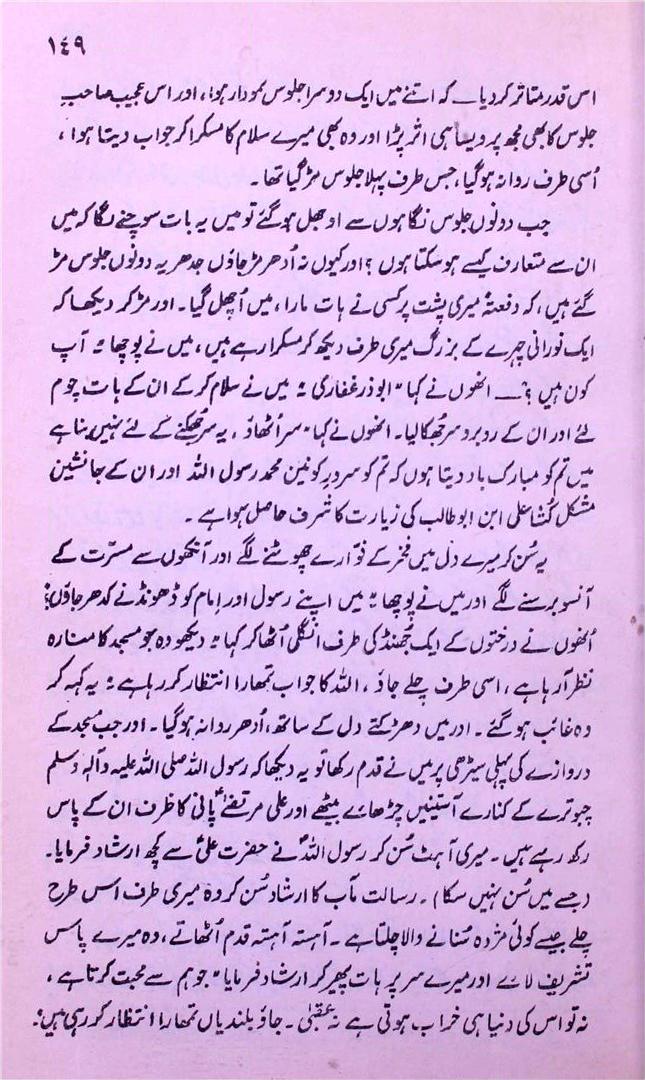 ١٤٩
اس قدر متاثر کر دیا — کہ اتنے میں ایک دوسرا جلوس نمودار ہوا، اور اس عجیب صاحبِ
جلوس کا بھی مجھ پر ویسا ہی اثر پڑا اور وہ بھی میرے سلام کا مسکرا کر جواب دیتا ہوا،
اُسی طرف روانہ ہو گیا، جس طرف پہلا جلوس مڑ گیا تھا۔
جب دونوں جلوس نگاہوں سے اوجھل ہو گئے تو میں یہ بات سوچنے لگا کہ میں
ان سے متعارف کیسے ہو سکتا ہوں؟ اور کیوں نہ اُدھر مڑ جاؤں جدھر یہ دونوں جلوس مڑ
گئے ہیں، کہ دفعتہً میری پشت پر کسی نے ہات مارا، میں اُچھل گیا۔ اور مڑ کر دیکھا کہ
ایک نورانی چہرے کے بزرگ میری طرف دیکھ کر مسکرا رہے ہیں، میں نے پوچھا "آپ
کون ہیں؟" — انھوں نے کہا "ابوذر غفاری" میں نے سلام کر کے ان کے ہات چوم
لئے اور ان کے روبرو سر جُھکا لیا۔ انھوں نے کہا "سر اُٹھاؤ، یہ سر جُھکنے کے لئے نہیں بنا ہے
میں تم کو مبارک باد دیتا ہوں کہ تم کو سرورِ کونین محمد رسول اللہ اور ان کے جانشین
مشکل کُشا علی ابن ابو طالب کی زیارت کا شرف حاصل ہوا ہے۔
یہ سُن کر میرے دل میں فخر کے فوّارے چھوٹنے لگے اور آنکھوں سے مسرّت کے
آنسو برسنے لگے اور میں نے پوچھا "میں اپنے رسول اور امام کو ڈھونڈنے کدھر جاؤں؟"
اُنھوں نے درختوں کے ایک جُھنڈ کی طرف انگلی اُٹھا کر کہا "دیکھو وہ جو مسجد کا منارہ
نظر آ رہا ہے، اسی طرف چلے جاؤ، اللہ کا جواب تمھارا انتظار کر رہا ہے" یہ کہہ کر
وہ غائب ہو گئے۔ اور میں دھڑکتے دل کے ساتھ، اُدھر روانہ ہو گیا۔ اور جب مسجد کے
دروازے کی پہلی سیڑھی پر میں نے قدم رکھا تو یہ دیکھا کہ رسول اللہ صلی اللہ علیہ وآلہٖ وسلم
چبوترے کے کنارے آستینیں چڑھائے بیٹھے اور علی مرتضےٰؑ پانی کا ظرف ان کے پاس
رکھ رہے ہیں۔ میری آہٹ سُن کر رسول اللہؐ نے حضرت علیؑ سے کچھ ارشاد فرمایا۔
(جسے میں سُن نہیں سکا)۔ رسالت مآب کا ارشاد سُن کر وہ میری طرف اس طرح
چلے جیسے کوئی مژدہ سُنانے والا چلتا ہے۔ آہستہ آہستہ قدم اُٹھاتے، وہ میرے پاس
تشریف لائے اور میرے سر پر ہات پھیر کر ارشاد فرمایا "جو ہم سے محبت کرتا ہے،
نہ تو اس کی دنیا ہی خراب ہوتی ہے نہ عقبیٰ۔ جاؤ بلندیاں تمھارا انتظار کر رہی ہیں"۔